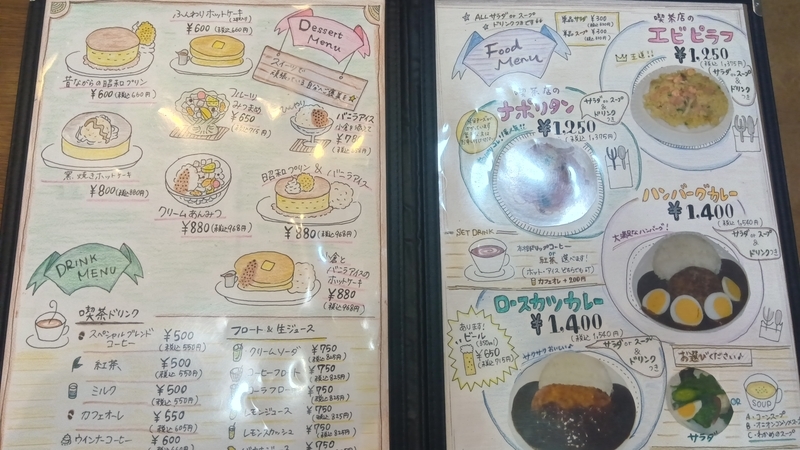 ふんわりホットケーキ
¥600(税込660円)
昔ながらの昭和プリン
¥600(税込660円)
Dessert
Menu
フルーツ
みつまめ
¥650
バニラアイス
小倉添え
黒焼きホットケーキ
¥800(税込880円)
クリームあんみつ
¥880(税込968円)
昭和プリン & バニラアイス
¥880(税込968円)
小倉と
バニラアイスの
ホットケーキ
¥880
(税込968円)
DRINK
MENU
喫茶ドリンク
スペシャルブレンド
コーヒー
¥500
(税込550円)
紅茶
¥500
(税込550円)
ミルク
¥500
(税込550円)
カフェオーレ
¥550
(税込605円)
ウインナーコーヒー
¥600
フロート&生ジュース
クリームソーダ
¥750
(税込825円)
コーヒーフロート
¥750
(税込825円)
コーラフロート
¥750
(税込825円)
レモンジュース
¥750
(税込825円)
レモンスカッシュ
¥750
(税込825円)
¥750
☆ ALL サラダ or スープ
ドリンクつきです
単品サラダ ¥300
単品スープ ¥300
Food
Menu
喫茶店の
エビピラフ
¥1,250
(税込1,375円)
王道!!
サラダ or スープ
&
ドリンク
つき
喫茶店の
ナポリタン
¥1,250
(税込1,375円)
サラダ or スープ
&
ドリンク
つき
ハンバーグカレー
¥1,400
(税込1,540円)
大満足なハンバーグ!
サラダ or スープ
&
ドリンク
つき
SET DRINK
水出ドリップコーヒー
or
紅茶 選べます!
ホット・アイス どちらでも♪
カフェオレ +200円
ロースカツカレー
¥1,400
(税込1,540円)
サクサクおいしい♪
サラダ or スープ
&
ドリンク
つき
あります!
ビール
¥650
(税込715円)
お選びください♪
サラダ
OR
SOUP
A・コーンスープ
B・オニオンコンソメスープ
C・わかめスープ